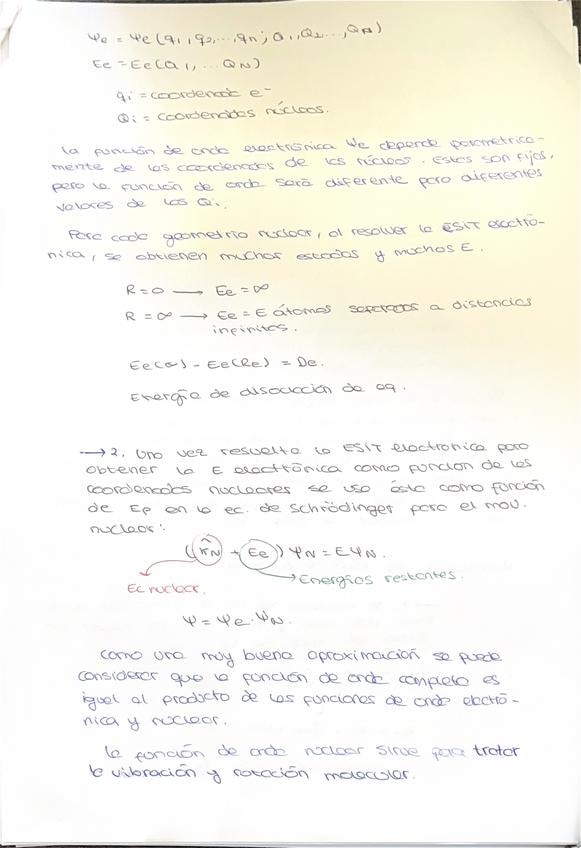 Ψe = Ψe (q1, q2, ..., qn; Q1, Q2 ..., QN)
Ee = Ee (Q1, ... QN)
qi = coordenada e-
Qi = coordenadas núcleos.
La función de onda electrónica Ψe depende paramétrica-
mente de las coordenadas de los núcleos. Estos son fijos,
pero la función de onda será diferente para diferentes
valores de los Qi.
Para cada geometría nuclear, al resolver la ESIT electró-
nica, se obtienen muchos estados y muchos E.
R = 0 → Ee = ∞
R = ∞ → Ee = E átomos separados a distancias
infinitas.
Ee(∞) - Ee(Re) = De.
Energía de disociación de eq.
→ 2. Una vez resuelta la ESIT electronica para
obtener la E electrónica como funcion de las
coordenadas nucleares se usa ésta como función
de Ep en la ec. de Schrödinger para el mov.
nuclear:
(K̂N + Ee) ΨN = EΨN.
Ec nuclear. Energías restantes.
Ψ = Ψe · ΨN.
Como una muy buena aproximación se puede
considerar que la función de onda completa es
igual al producto de las funciones de onda electró-
nica y nuclear.
La función de onda nuclear sirve para tratar
la vibración y rotación molecular.